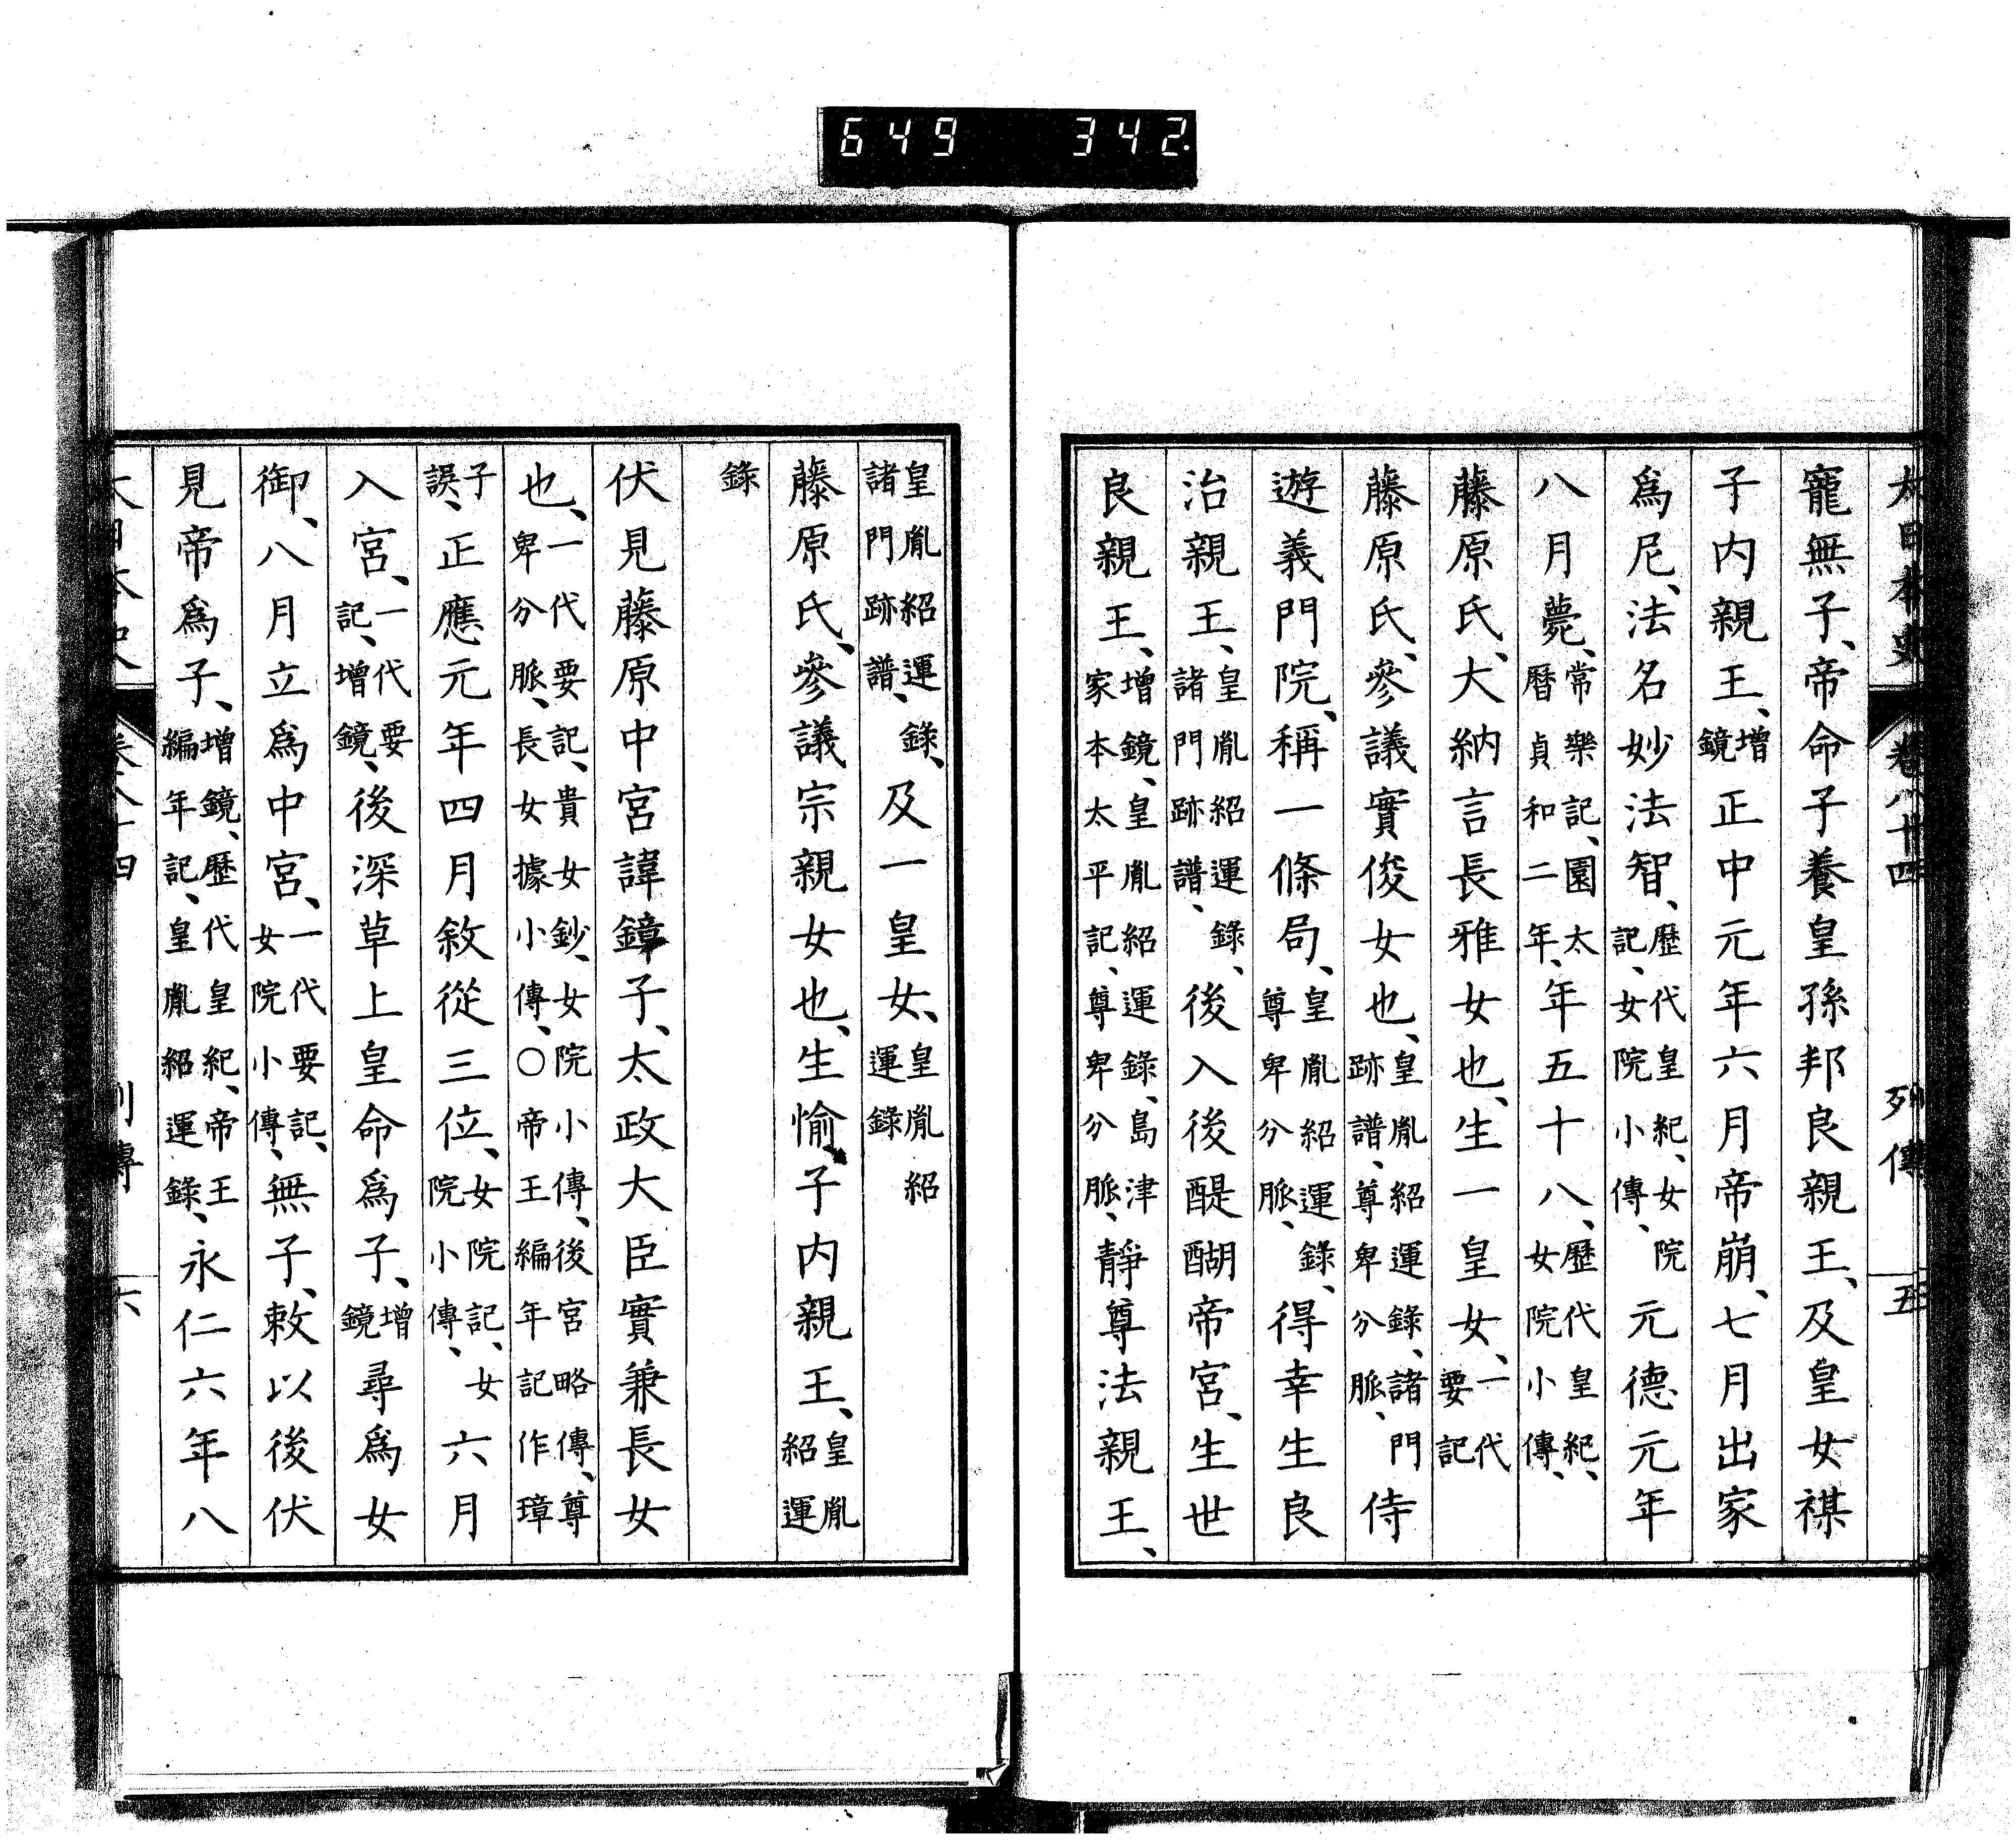 大日本史 卷八十四 列傳 五
寵無子、帝命子養皇孫邦良親王、及皇女禖
子内親王、增鏡正中元年六月帝崩、七月出家
爲尼、法名妙法智、歷代皇紀、女院記、女院小傳、元德元年
八月薨、常樂記、園太曆貞和二年、年五十八、歷代皇紀、女院小傳、
藤原氏、大納言長雅女也、生一皇女、一代要記
藤原氏、參議實俊女也、皇胤紹運錄、諸門跡譜、尊卑分脈、侍
遊義門院、稱一條局、皇胤紹運錄、尊卑分脈、得幸生良
治親王、皇胤紹運錄、諸門跡譜、後入後醍醐帝宮、生世
良親王、增鏡、皇胤紹運錄、島津家本太平記、尊卑分脈、靜尊法親王、
皇胤紹運錄、諸門跡譜、及一皇女、皇胤紹運錄
藤原氏、參議宗親女也、生愉子内親王、皇胤紹運
錄
伏見藤原中宮諱鏱子、太政大臣實兼長女
也、一代要記、貴女鈔、女院小傳、後宮略傳、尊卑分脈、長女據小傳、○帝王編年記作璋
子誤、正應元年四月敘從三位、女院記、女院小傳、六月
入宮、一代要記、增鏡、後深草上皇命爲子、增鏡尋爲女
御、八月立爲中宮、一代要記、女院小傳、無子、敕以後伏
見帝爲子、增鏡、歷代皇紀、帝王編年記、皇胤紹運錄、永仁六年八
大日本史 卷八十四 列傳 六
649 342.